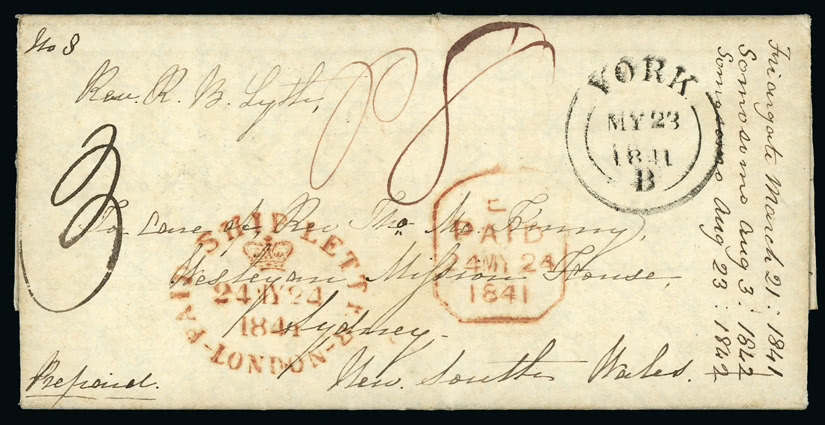 No 8
Rev. R. B. Lyth,
8
3
To care of Rev Thos Mc. Kenny,
Wesleyan Mission House,
Sydney.
New South Wales.
Prepaid.
YORK
MY 23
1841
B
E
PAID
24 MY 24
1841
PAID SHIP LETTER
24 MY 24
1841
LONDON
Friargate March 21: 1841
Somosomo Aug 3: 1842
Somosomo Aug 23: 1842